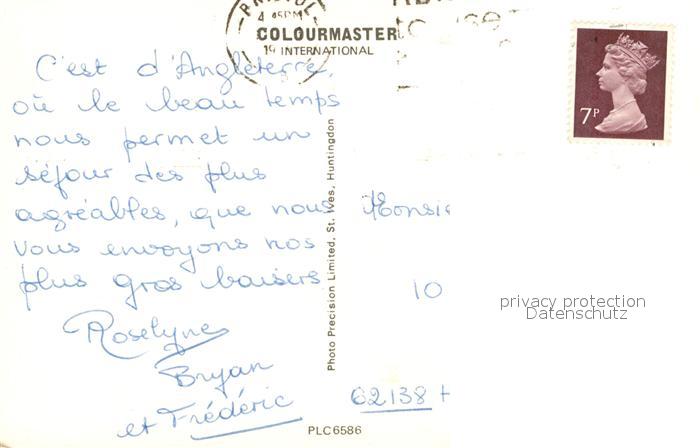 BRISTOL
4 45PM
19
COLOURMASTER
INTERNATIONAL
7P
C'est d'Angleterre,
où le beau temps
nous permet un
séjour des plus
agréables, que nous
vous envoyons nos
plus gros baisers
Roselyne
Bryan
et Frédéric
Photo Precision Limited, St. Ives, Huntingdon
Monsie
10
62138 H
privacy protection
Datenschutz
PLC6586